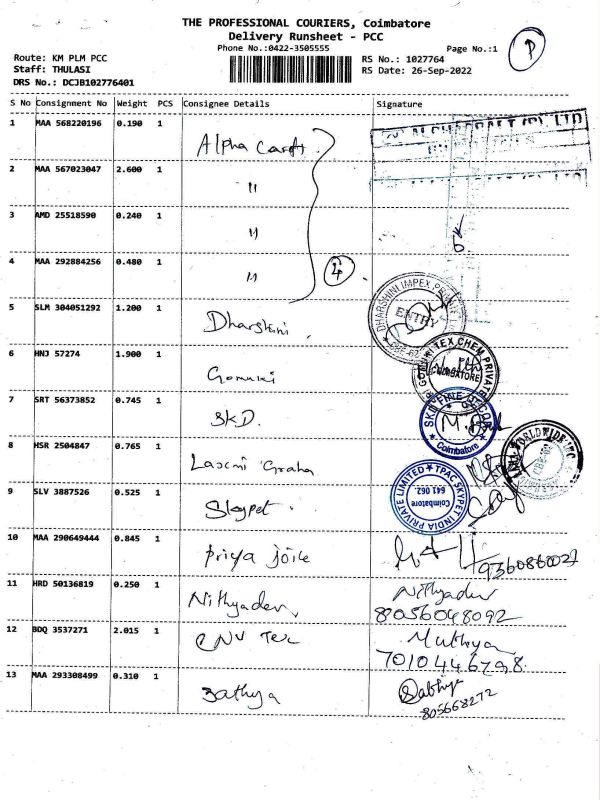 THE PROFESSIONAL COURIERS, Coimbatore
Delivery Runsheet - PCC
Phone No.:0422-3505555
Page No.:1
Route: KM PLM PCC
RS No.: 1027764
Staff: THULASI
RS Date: 26-Sep-2022
DRS No.: DCJB102776401
S No Consignment No Weight PCS Consignee Details Signature
1 MAA 568220196 0.190 1 Alpha
2 MAA 567023047 2.600 1 "
3 AMD 25518590 0.240 1 "
4 MAA 292884256 0.480 1 " 4
5 SLM 304051292 1.200 1 Dharshini. DHARSHINI IMPEX PRIVATE ENTRY
6 HNJ 57274 1.900 1 Gomuki GOMUKI TEX CHEM PRIVATE COIMBATORE
7 SRT 56373852 0.745 1 SKD. SKD FINE DECOR Coimbatore
8 HSR 2504847 0.765 1 Laxmi Graha WORLDWIDE INC
9 SLV 3887526 0.525 1 Skypet. TPAC SKYPET INDIA PRIVATE LIMITED Coimbatore 641 062
10 MAA 290649444 0.845 1 Priya 9360860027
11 HRD 50136819 0.250 1 Nithyadev Nithyadev
8056048092
12 BDQ 3537271 2.015 1 CNV Tex Muthya
7010446798
13 MAA 293308499 0.310 1 Sathya
805668272